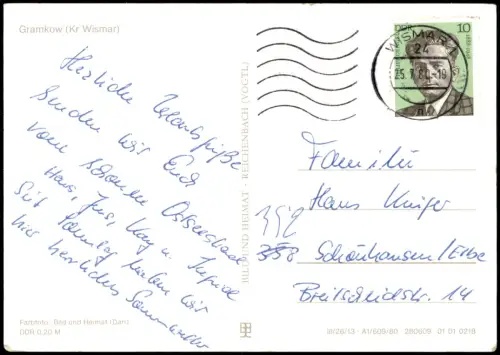 Gramkow (Kr Wismar)
Herzliche Urlaubsgrüße
senden wir Euch
vom schönen Ostseestrand
Hans, Jens, Kay u. Ingrid
Seit Sonntag haben wir
hier herrliches Sommerwetter
Farbfoto: Bild und Heimat (Darr)
DDR 0,20 M
BILD UND HEIMAT · REICHENBACH (VOGTL)
DDR 10
WISMAR 1
24
25.7.80.-18
Familie
Hans Krüger
352
358 Schönhausen/Elbe
Breitscheidstr. 14
III/26/13 A1/609/80 280609 01 01 0218